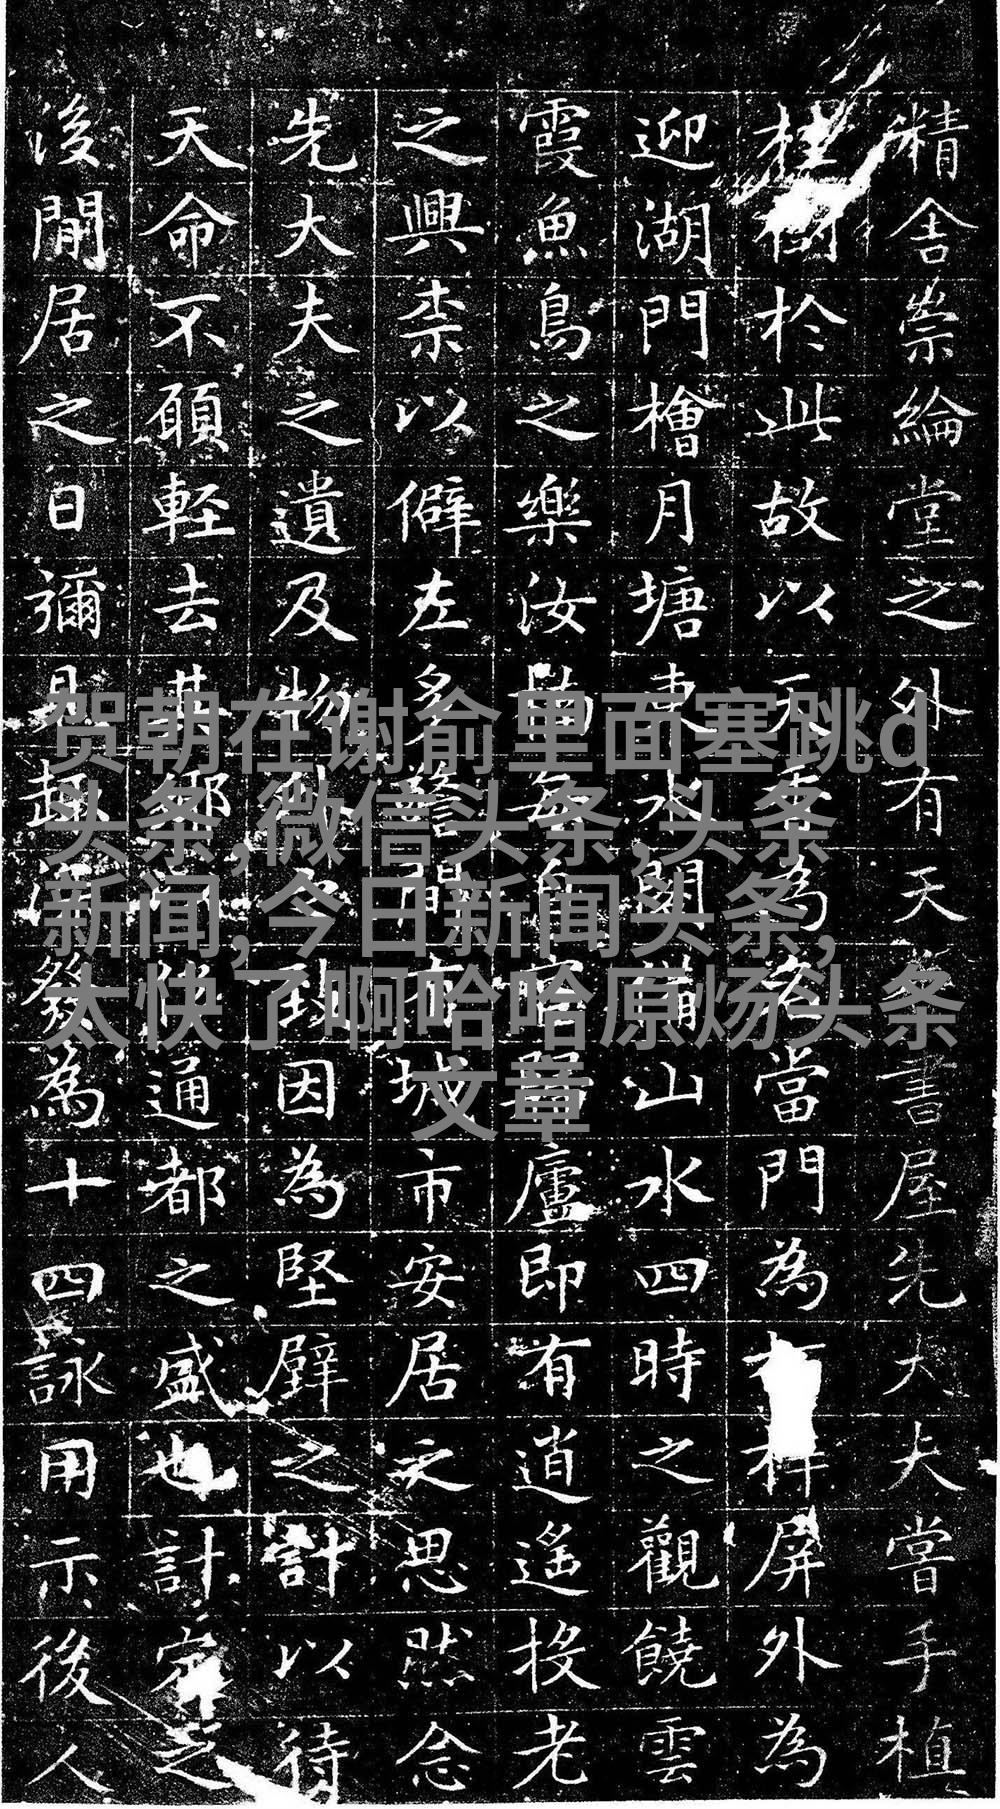 精舍崇綸堂之外有天書屋先大夫嘗手植
桂樹於此故以天為當門為屏外為
迎湖門檜月塘東水關山水四時之觀饒雲
霞魚鳥之樂汝廬即有逍遙投老
之興柰以僻左多詹市城市安居之思然念
先大夫之遺及物因為堅壁之計以待
天命不願輕去其鄉通都之盛也計之
後閒居之日彌見趣發為十四詠用示後人
贺朝在谢俞里面塞跳d
头条,微信头条,头条
新闻,今日新闻头条,
太快了啊哈哈原炀头条
文章